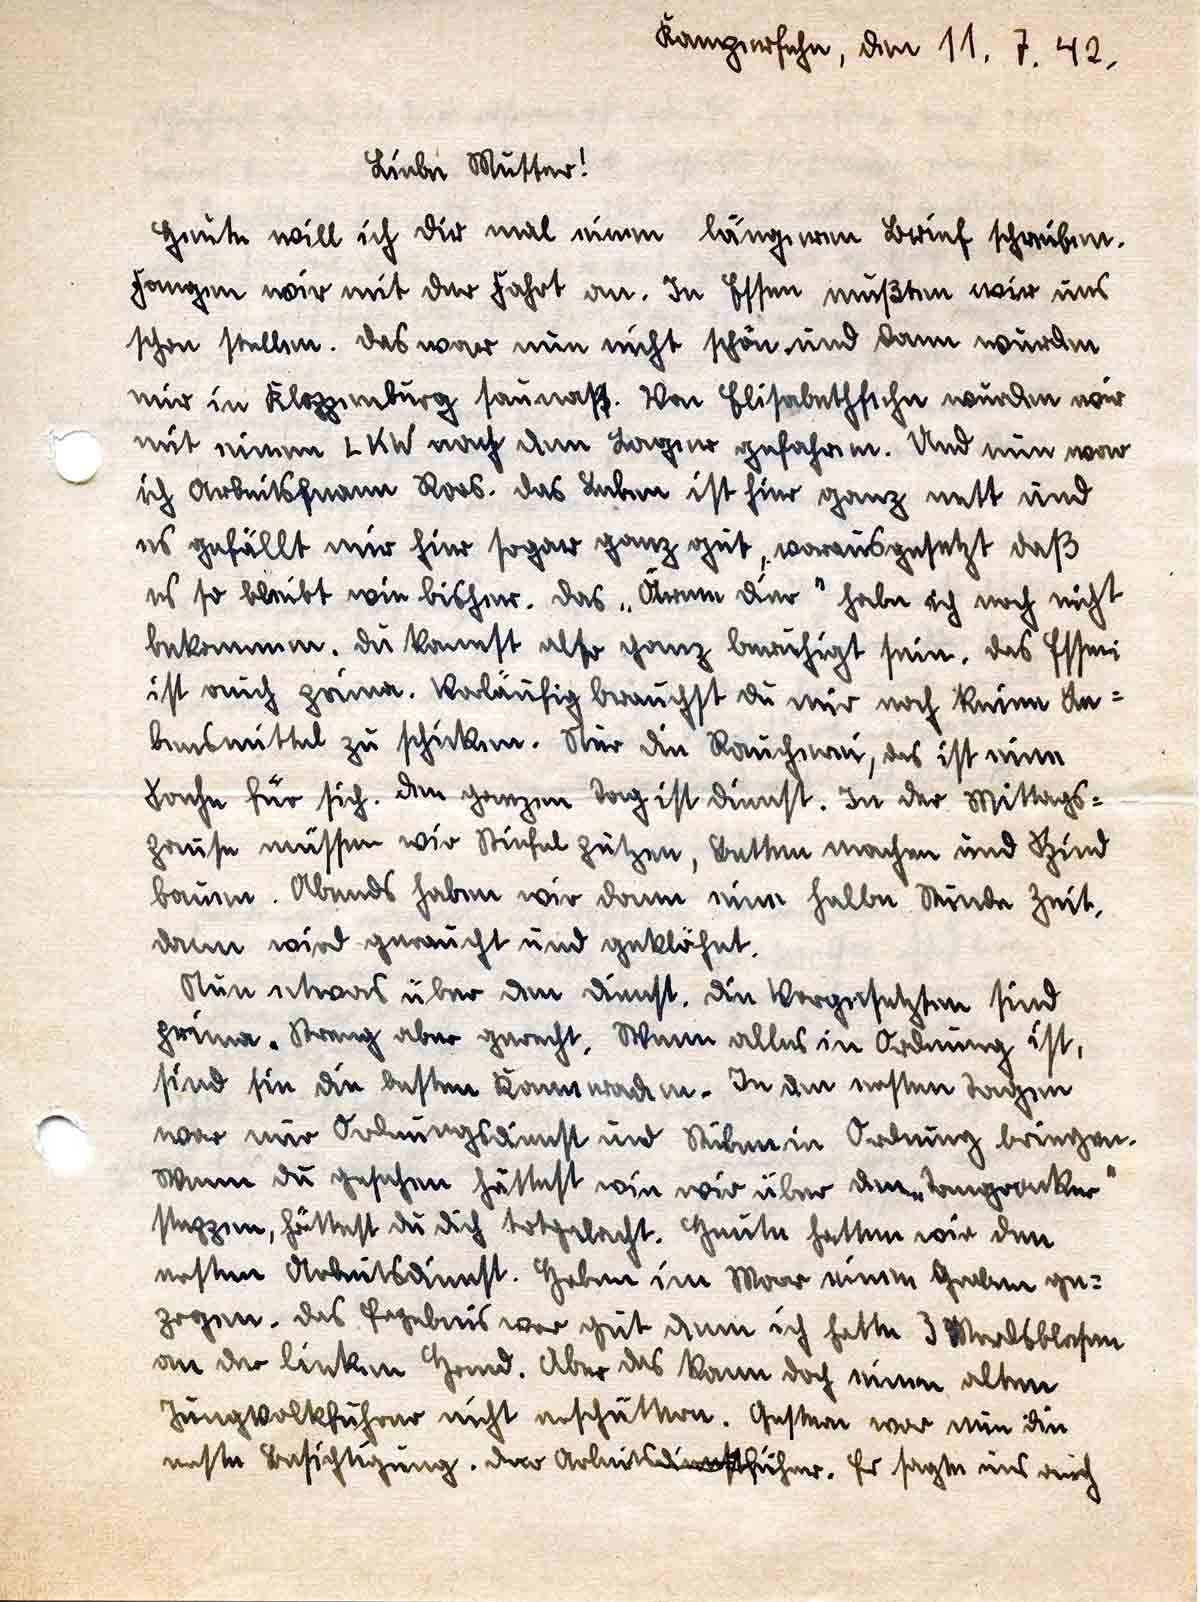 Kamperfehn, den 11. 7. 42.
Liebe Mutter!
Heute will ich Dir mal einen längeren Brief schreiben.
Fangen wir mit der Fahrt an. In Essen mußten wir uns
schon stellen. Das war nun nicht schön und dann wurden
wir in Kloppenburg
. Von Elisabethfehn wurden wir
mit einem LKW nach dem Lager gefahren. Und nun war
ich Arbeitsmann Roos. Das Leben ist hier ganz nett und
es gefällt mir hier sogar ganz gut, vorausgesetzt daß
es so bleibt wie bisher. Das „Ärme Dier" habe ich noch nicht
bekommen. Du kannst also ganz beruhigt sein. Das Essen
ist auch prima. Vorläufig brauchst Du mir noch keine Le=
bensmittel zu schicken. Nur die Raucherei, das ist eine
Sache für sich. Den ganzen Tag ist Dienst. In der Mittags=
pause müssen wir Stiefel putzen, Betten machen und Spind
bauen. Abends haben wir dann eine halbe Stunde Zeit,
dann wird geraucht und geklöhnt.
Nun etwas über den Dienst. Die Vorgesetzten sind
prima. Streng aber gerecht. Wenn alles in Ordnung ist,
sind sie die besten Kameraden. In den ersten Tagen
war nur Ordnungsdienst und Stuben in Ordnung bringen.
Wenn Du gesehen hättest wie wir über den
steppen, hättest Du Dich totgelacht. Heute hatten wir den
ersten Arbeitsdienst. Haben im Moor einen Graben ge=
zogen. Das Ergebnis war gut denn ich hatte 3 Mordsblasen
an der linken Hand. Aber das kann doch einen alten
Jungvolkführer nicht erschüttern. Gestern war nun die
erste Besichtigung. Der Arbeitsführer. Er sagte uns auch